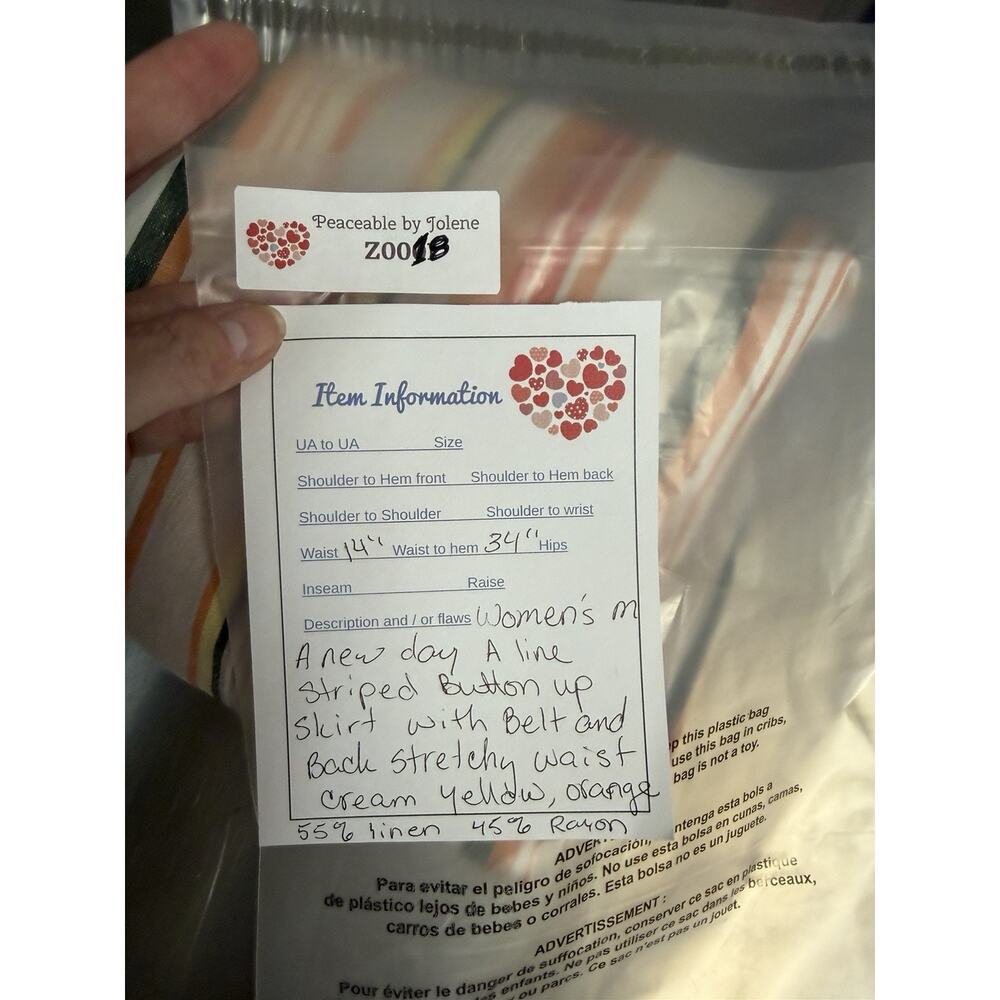 Peaceable by Jolene
Z0018
Item Information
UA to UA Size
Shoulder to Hem front Shoulder to Hem back
Shoulder to Shoulder Shoulder to wrist
Waist 14" Waist to hem 34" Hips
Inseam Raise
Description and / or flaws Women's m
A new day A line
Striped Button up
Skirt with Belt and
Back stretchy waist
cream yellow, orange
55% linen 45% Rayon
p this plastic bag
use this bag in cribs,
bag is not a toy.
ntenga esta bols a
ADVER
de sofocación,
Para evitar el peligro de
de plástico lejos de bebes y niños. No use esta bolsa en cunas, camas,
carros de bebes o corrales. Esta bolsa no es un juguete.
ADVERTISSEMENT :
Pour éviter le danger de suffocation, conserver ce sac en plastique
les enfants. Ne pas utiliser ce sac dans les berceaux,
ou parcs. Ce sac n'est pas un jouet.